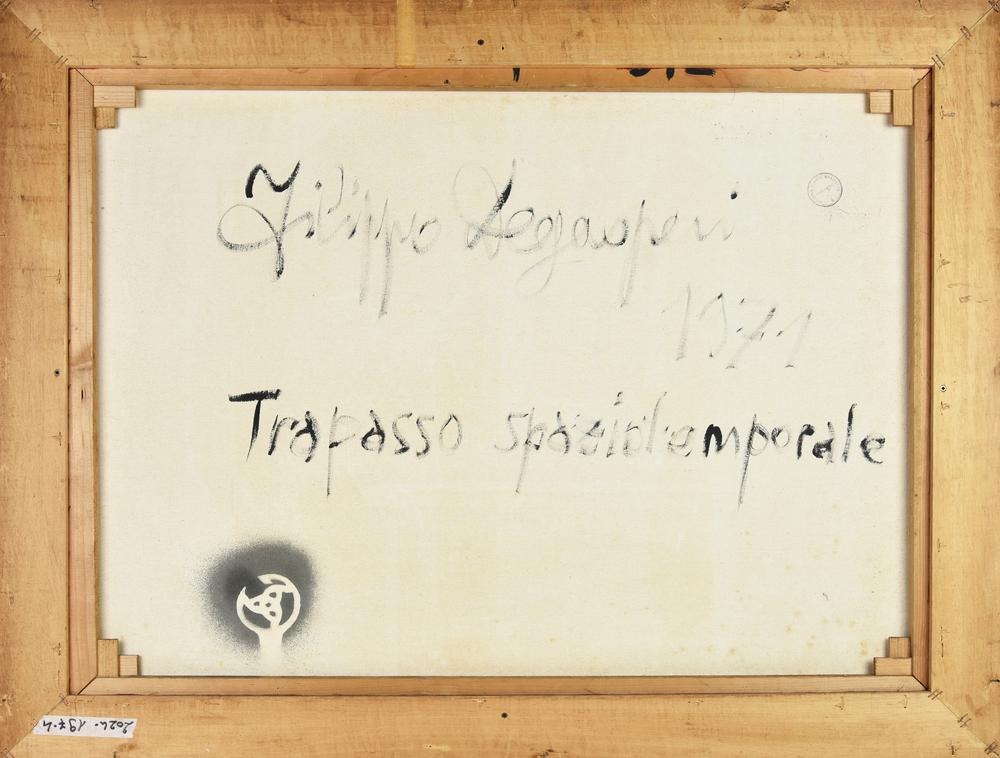 Filippo Degasperi
1971
Trapasso spaziotemporale
2024-197-4